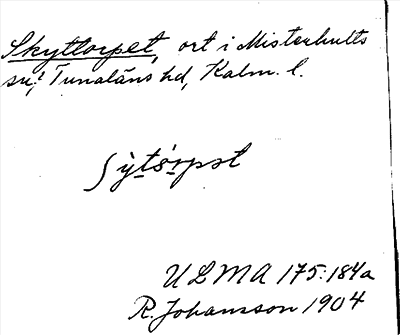 Skyttorpet, ort i Misterhults
sn, Tunaläns hd, Kalm. l.
ʃỳtǻrpət
ULMA 175:184a
R. Johansson 1904